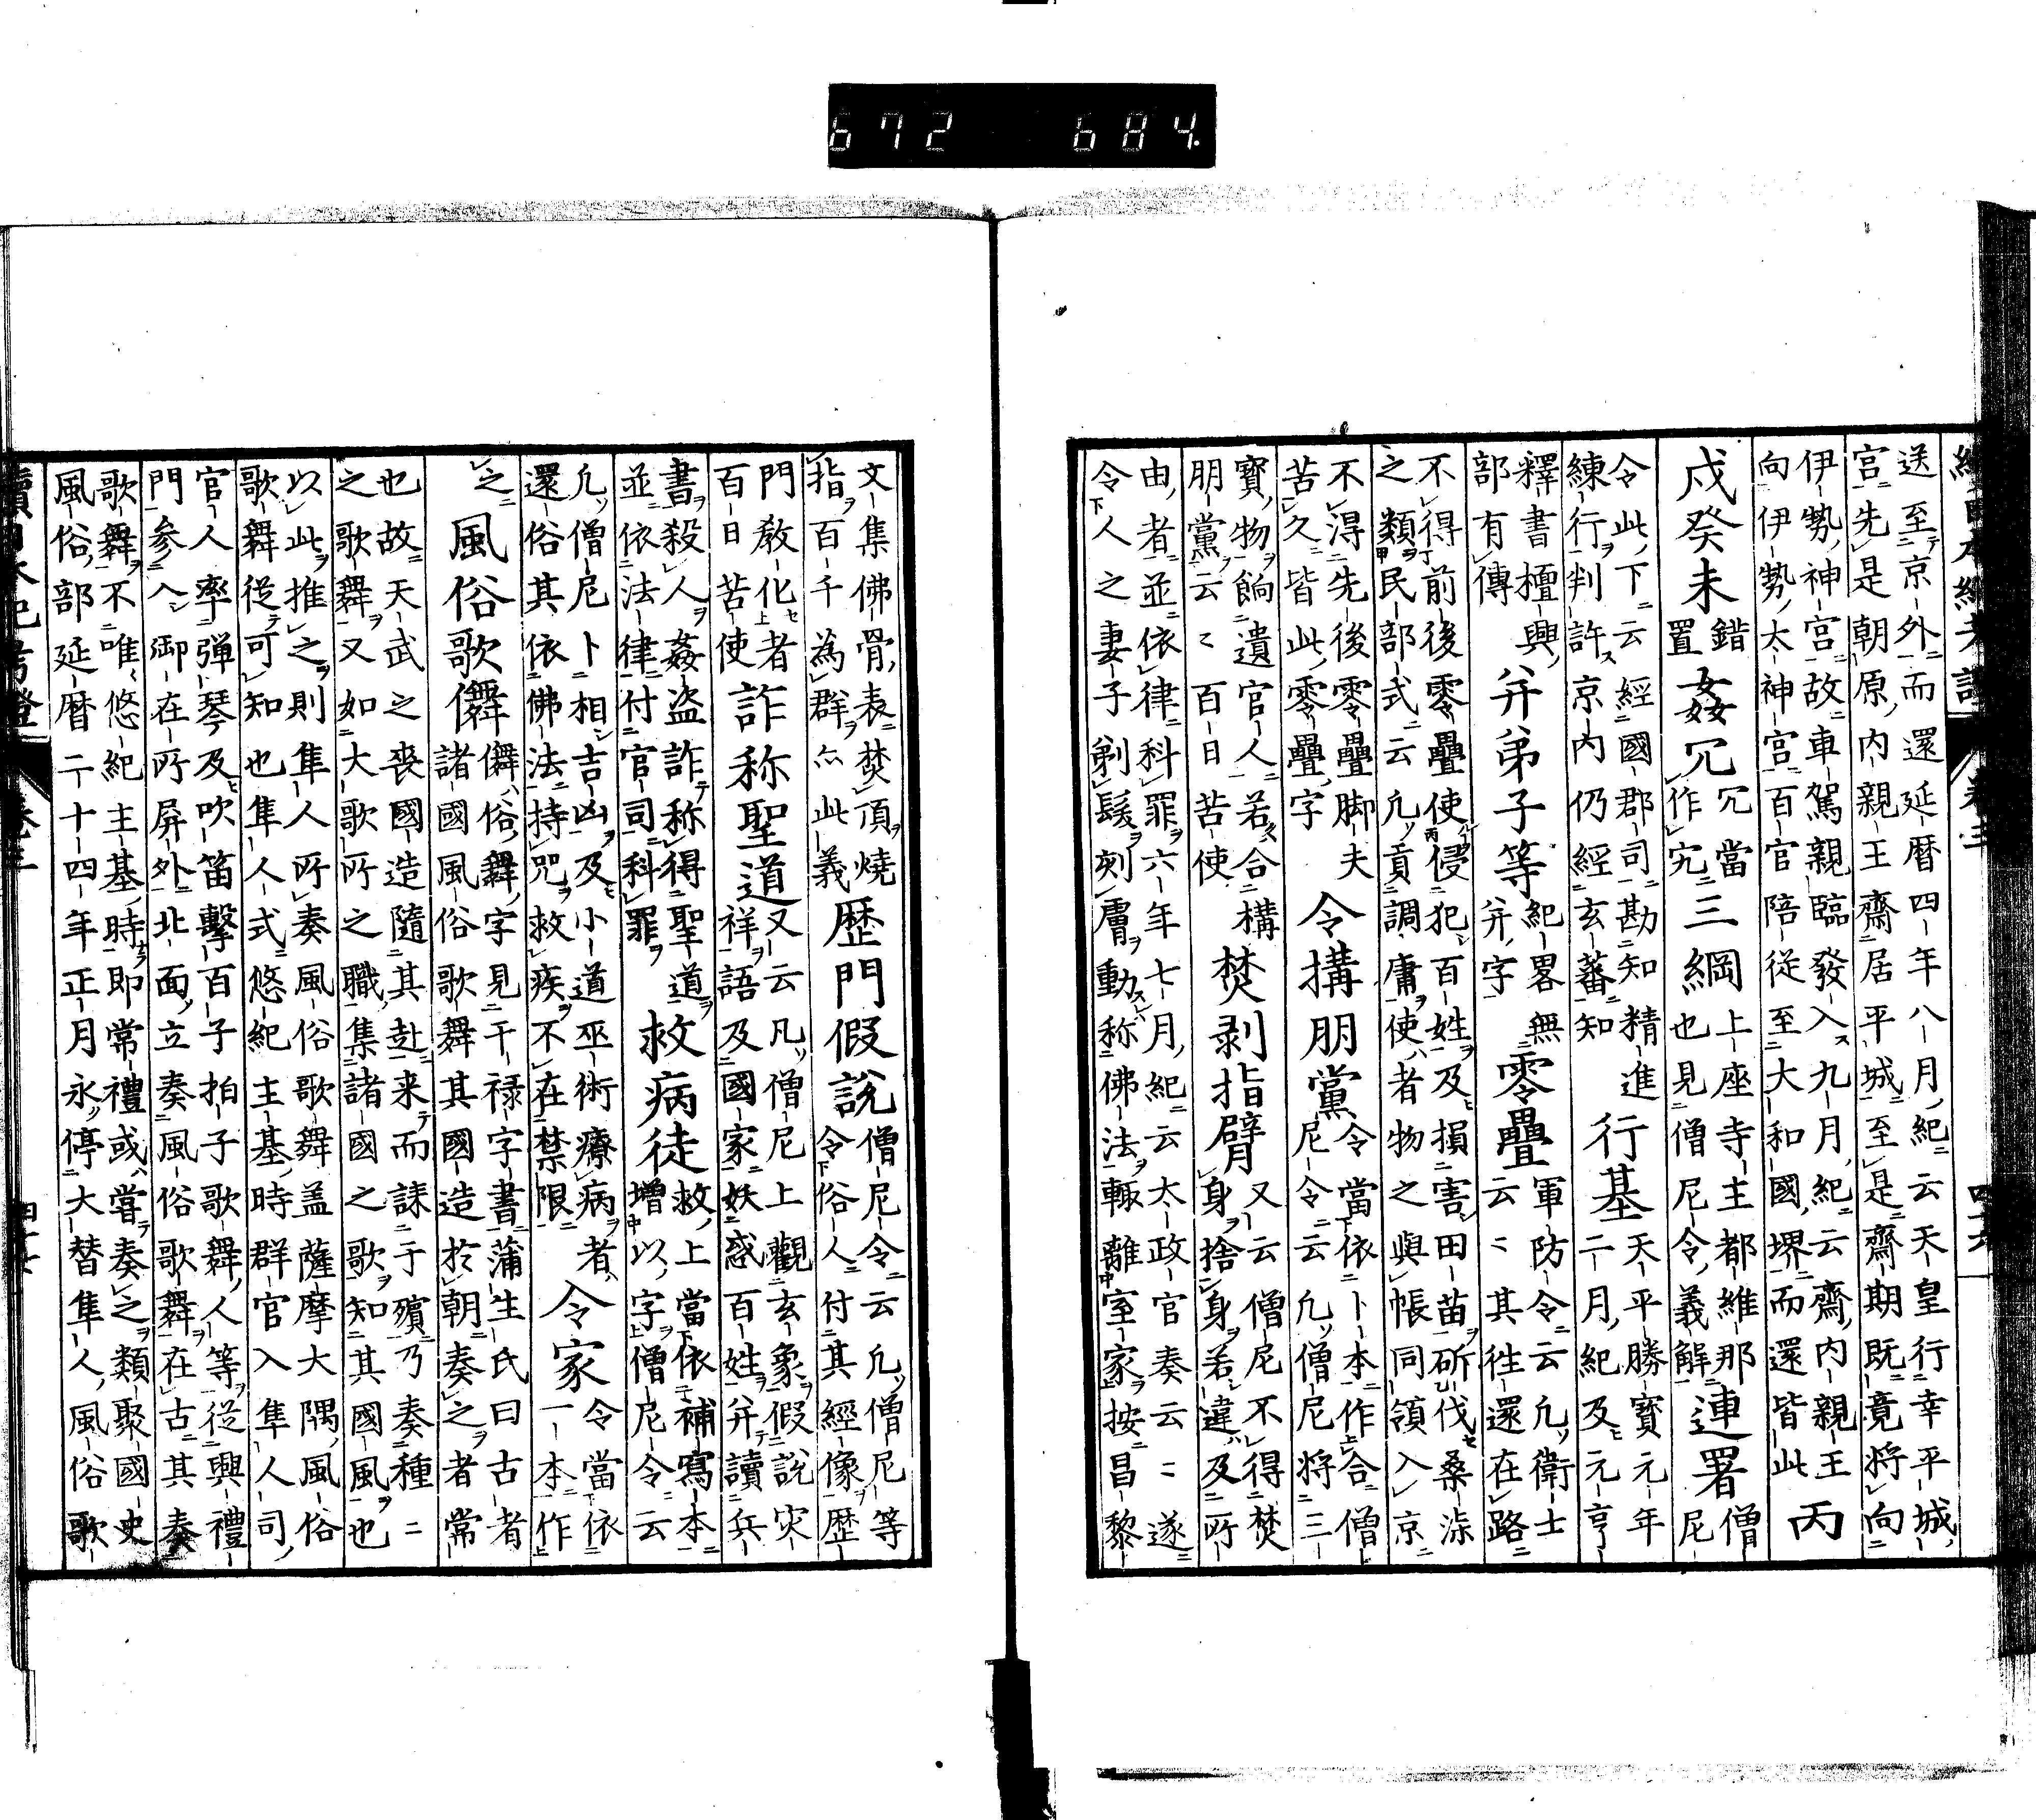 送至京外而還延暦四年八月紀云天皇行幸平城
宮先是朝原内親王齋居平城至是齋期既竟將向
伊勢神宮故車駕親臨發入九月紀云齋内親王
向伊勢太神宮百官陪從至大和國堺而還皆此 丙
戌癸未 錯置 姦冗 冗當作宄 三綱 上座寺主都維那也見僧尼令義解 連署 僧尼
令此下云經國郡司勘知精進
練行判許京内仍經玄蕃知 行基 天平勝寳元年二月紀及元亨
釋書檀興部有傳 弁弟子等 紀畧無弁字 零疊 軍防令云凡衛士云〻其徃還在路
不得前後零疊使侵犯百姓及損害田苗斫伐桑漆
之類民部式云凡賷調庸使者物之與帳同領入京
不得先後零疊脚夫苦久皆此零疊字 令搆朋黨 令當依卜本作合僧尼令云凡僧尼將三
寳物餉遺官人若合構朋黨云〻百日苦使 焚剥指臂 又云僧尼不得焚身捨身若違及所
由者並依律科罪六年七月紀云太政官奏云〻遂
令人之妻子剃髮刻膚動称佛法輙離室家按昌黎
續日本紀考證 卷三
文集佛骨表焚頂燒指百千為群亦此義 歴門假說 僧尼令云凡僧尼等令俗人付其經像歴
門敎化者百日苦使 詐称聖道 又云凡僧尼上觀玄象假說灾祥語及國家妖惑百姓并讀兵
書殺人姦盗詐称得聖道並依法律付官司科罪 救病徒 救上當依補寫本増以字僧尼令云
凢僧尼卜相吉凶及小道巫術療病者還俗其依佛法持咒救疾不在禁限 令家 令當依一本作
之 風俗歌儛 儛俗舞字見干禄字書蒲生氏曰古者諸國風俗歌舞其國造於朝奏之者常
也故天武之喪國造隨其赴来而誄于殯乃奏種〻
之歌舞又如大歌所之職集諸國之歌知其國風也
以此推之則隼人所奏風俗歌舞盖薩摩大隅風俗
歌舞從可知也隼人式悠紀主基時群官入隼人司
官人率彈琴及吹笛擊百子拍子歌舞人等從興禮
門参入御在所屏外北面立奏風俗歌舞在古其奏
歌舞不唯悠紀主基時即常禮或嘗奏之類聚國史
風俗部延暦二十四年正月永停大替隼人風俗歌